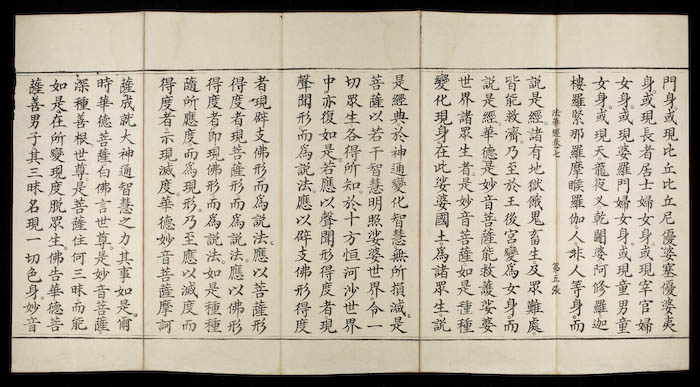 門身。或現比丘比丘尼優婆塞優婆夷
身。或現長者居士婦女身。或現宰官婦
女身。或現婆羅門婦女身。或現童男童
女身。或現天龍夜叉乾闥婆阿修羅迦
樓羅緊那羅摩睺羅伽人非人等身。而
法華經卷七 第五張
說是經。諸有地獄餓鬼畜生及眾難處。
皆能救濟。乃至於王後宮變爲女身。而
說是經。華德是妙音菩薩能救護娑婆
世界諸眾生者。是妙音菩薩如是種種
變化現身在此娑婆國土爲諸眾生說
是經典。於神通變化智慧無所損減。是
菩薩以若干智慧明照娑婆世界。令一
切眾生各得所知。於十方恒河沙世界
中亦復如是。若應以聲聞形得度者現
聲聞形而爲說法。應以辟支佛形得度
者現辟支佛形而爲說法。應以菩薩形
得度者現菩薩形而爲說法。應以佛形
得度者即現佛形而爲說法。如是種種
隨所應度而爲現形。乃至應以滅度而
得度者示現滅度。華德妙音菩薩摩訶
薩成就大神通智慧之力其事如是。爾
時華德菩薩白佛言世尊是妙音菩薩。
深種善根世尊。是菩薩住何三昧而能
如是在所變現度脫眾生。佛告華德菩
薩善男子其三昧名現一切色身妙音